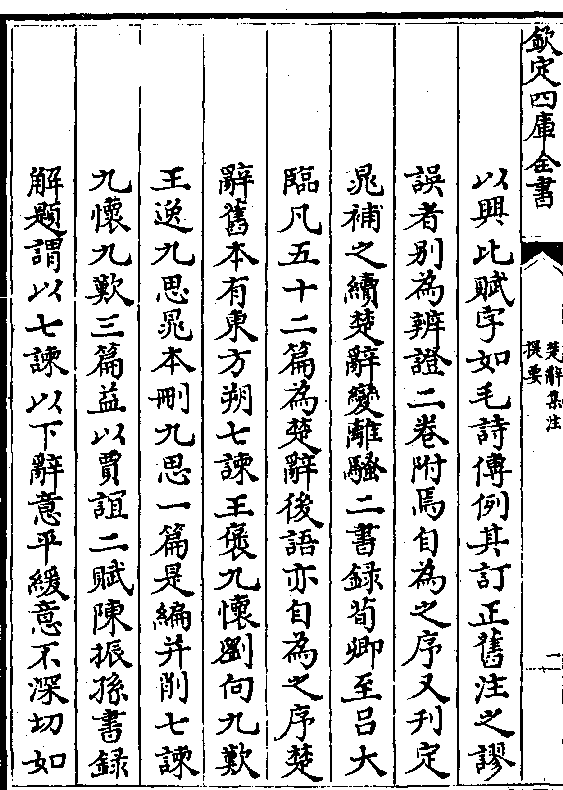 欽定四庫全書
楚辭集注
提要
二
以興比賦字如毛詩傳例其訂正舊注之謬
誤者别為辨證二卷附焉自為之序又刋定
晁補之續楚辭變離騷二書録荀卿至吕大
臨凡五十二篇為楚辭後語亦自為之序楚
辭舊本有東方朔七諫王褒九懷劉向九歎
王逸九思晁本刪九思一篇是編并削七諫
九懷九歎三篇益以賈誼二賦陳振孫書録
解題謂以七諫以下辭意平緩意不深切如